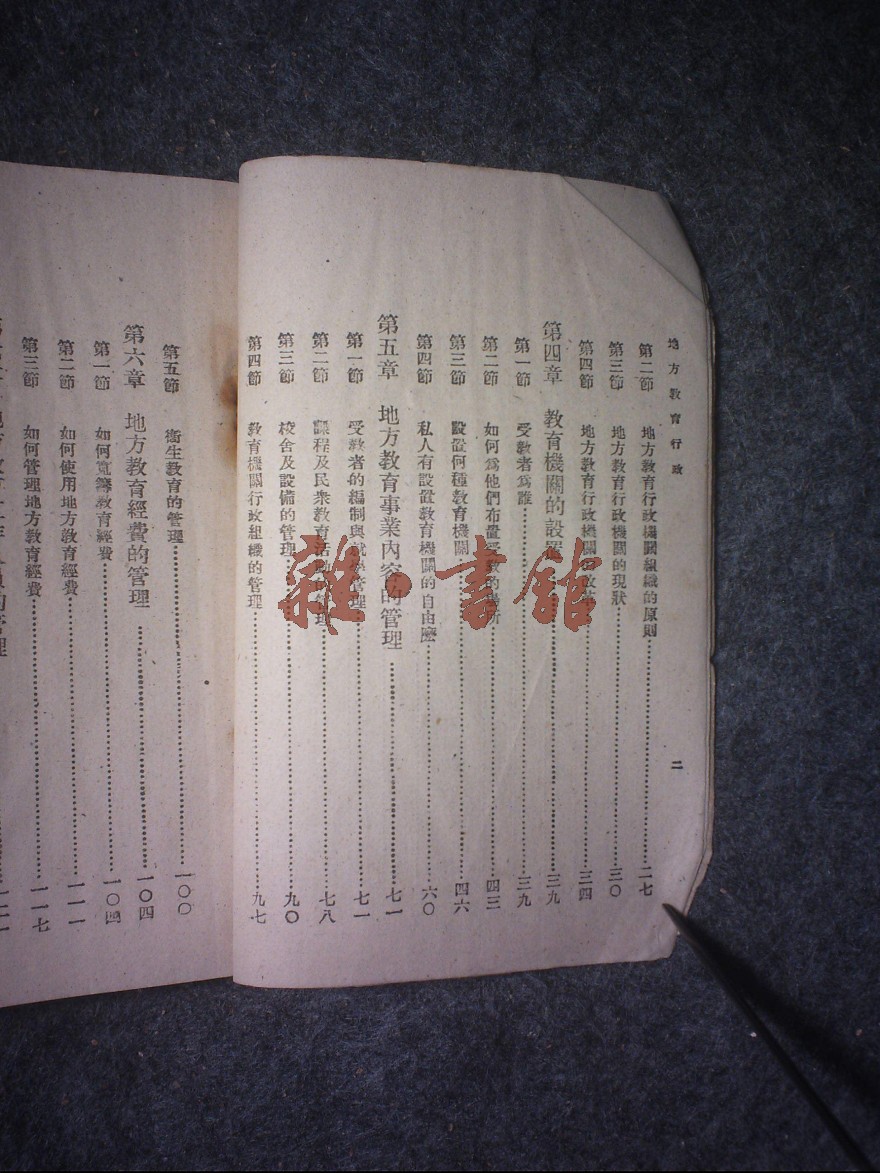 地方教育行政
二
第二節 地方教育行政機關組織的原則 二七
第三節 地方教育行政機關的現狀 三〇
第四節 地方教育行政機關的改革 三四
第四章 教育機關的設置 三九
第一節 受教者爲誰 三九
第二節 如何爲他們布置受教的場所 四三
第三節 設置何種教育機關 四六
第四節 私人有設置教育機關的自由麽 六〇
第五章 地方教育事業內容的管理 七一
第一節 受教者的編制與就學管理 七一
第二節 課程及民衆教育活動的管理 七八
第三節 校舍及設備的管理 九〇
第四節 教育機關行政組織的管理 九七
第五節 衞生教育的管理 一〇〇
第六章 地方教育經費的管理 一〇四
第一節 如何寬籌教育經費 一〇四
第二節 如何使用地方教育經費 一一一
第三節 如何管理地方教育經費 一一七
雜·書館